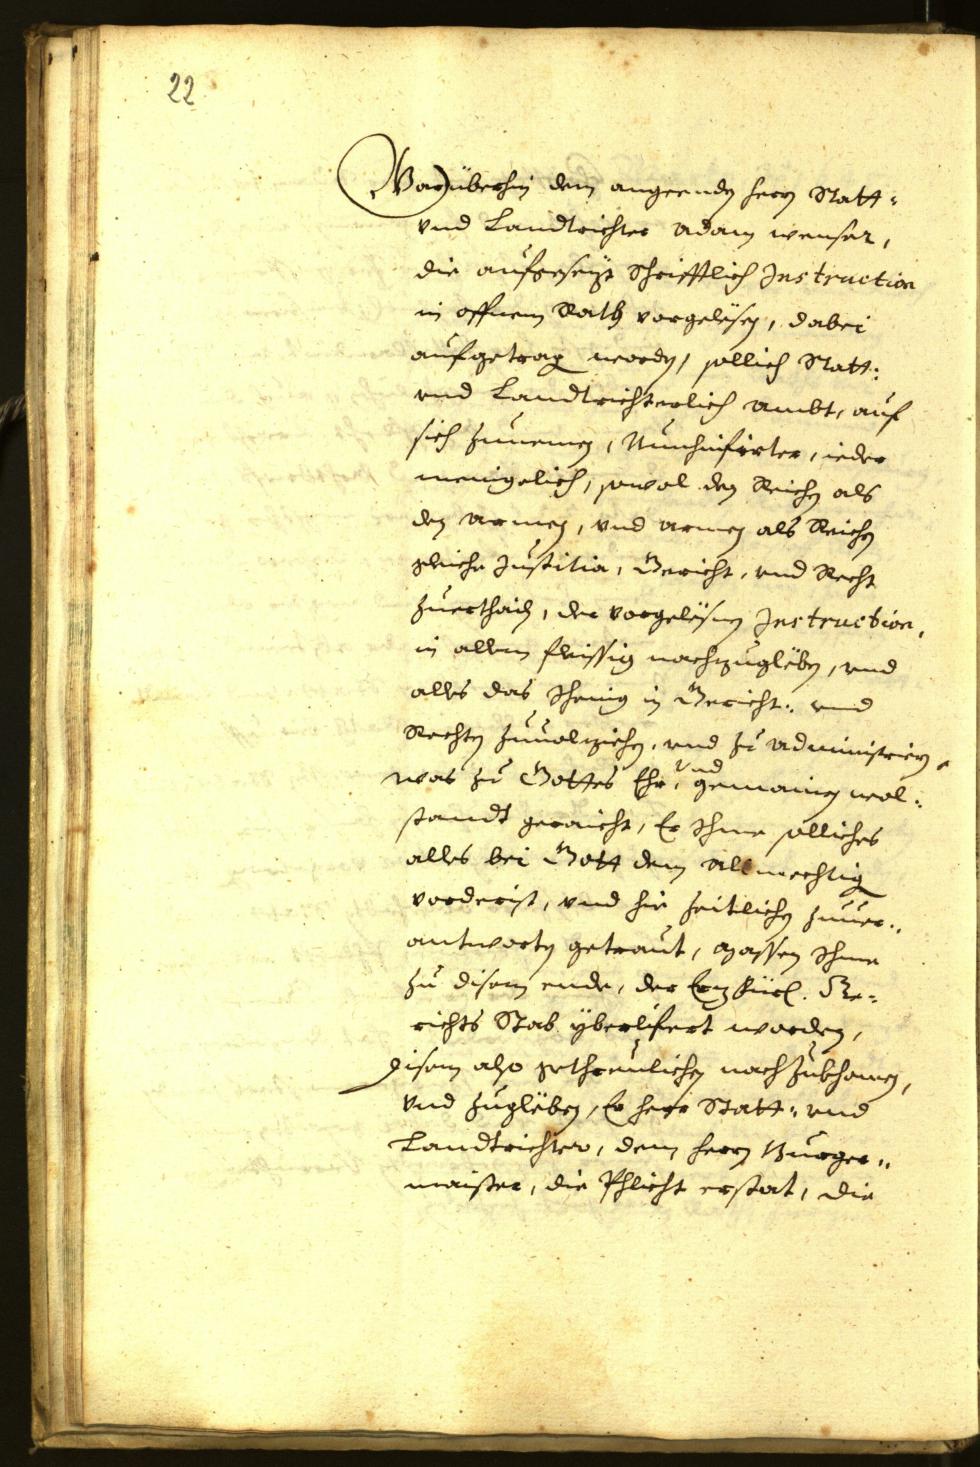 22
Warüberhin dem angeenden herrn Statt-
vnd Landtrichter Adam wenser,
die aufgesezte Schrifftlich Instruction
in offnem Rath vorgelesen, dabei
aufgetragen worden, sollich Statt:
vnd Landtrichterlich Ambt, auf
sich zunemen, Nunhinfürter, ieder
menigelich, sowol den Reichen als
den armen, vnd armen als Reichen
gleiche Justitia, Gericht, vnd Recht
zuerthailn, der vorgelesnen Instruction,
in allem fleissig nachzugleben, vnd
alles das Ihenig in Gericht: vnd
Rechten zuuolziehen, vnd zu administrirn,
was zu Gottes Ehr, vnd gemainen wol:
standt geraicht, Er Ihme solliches
alles bei Gott dem Allmechtigen
vorderist, vnd hie zeitlichen zuuer:
antworten getraut, massen Ihme
zu disem ende, der Erzfürl. Ge-
richts Stab yberlifert worden,
disem also gethreulichen nachzukhomen,
vnd zugleben, Er herr Statt: vnd
Landtrichter, dem herrn Burger:
maister, die Phlicht erstat, die